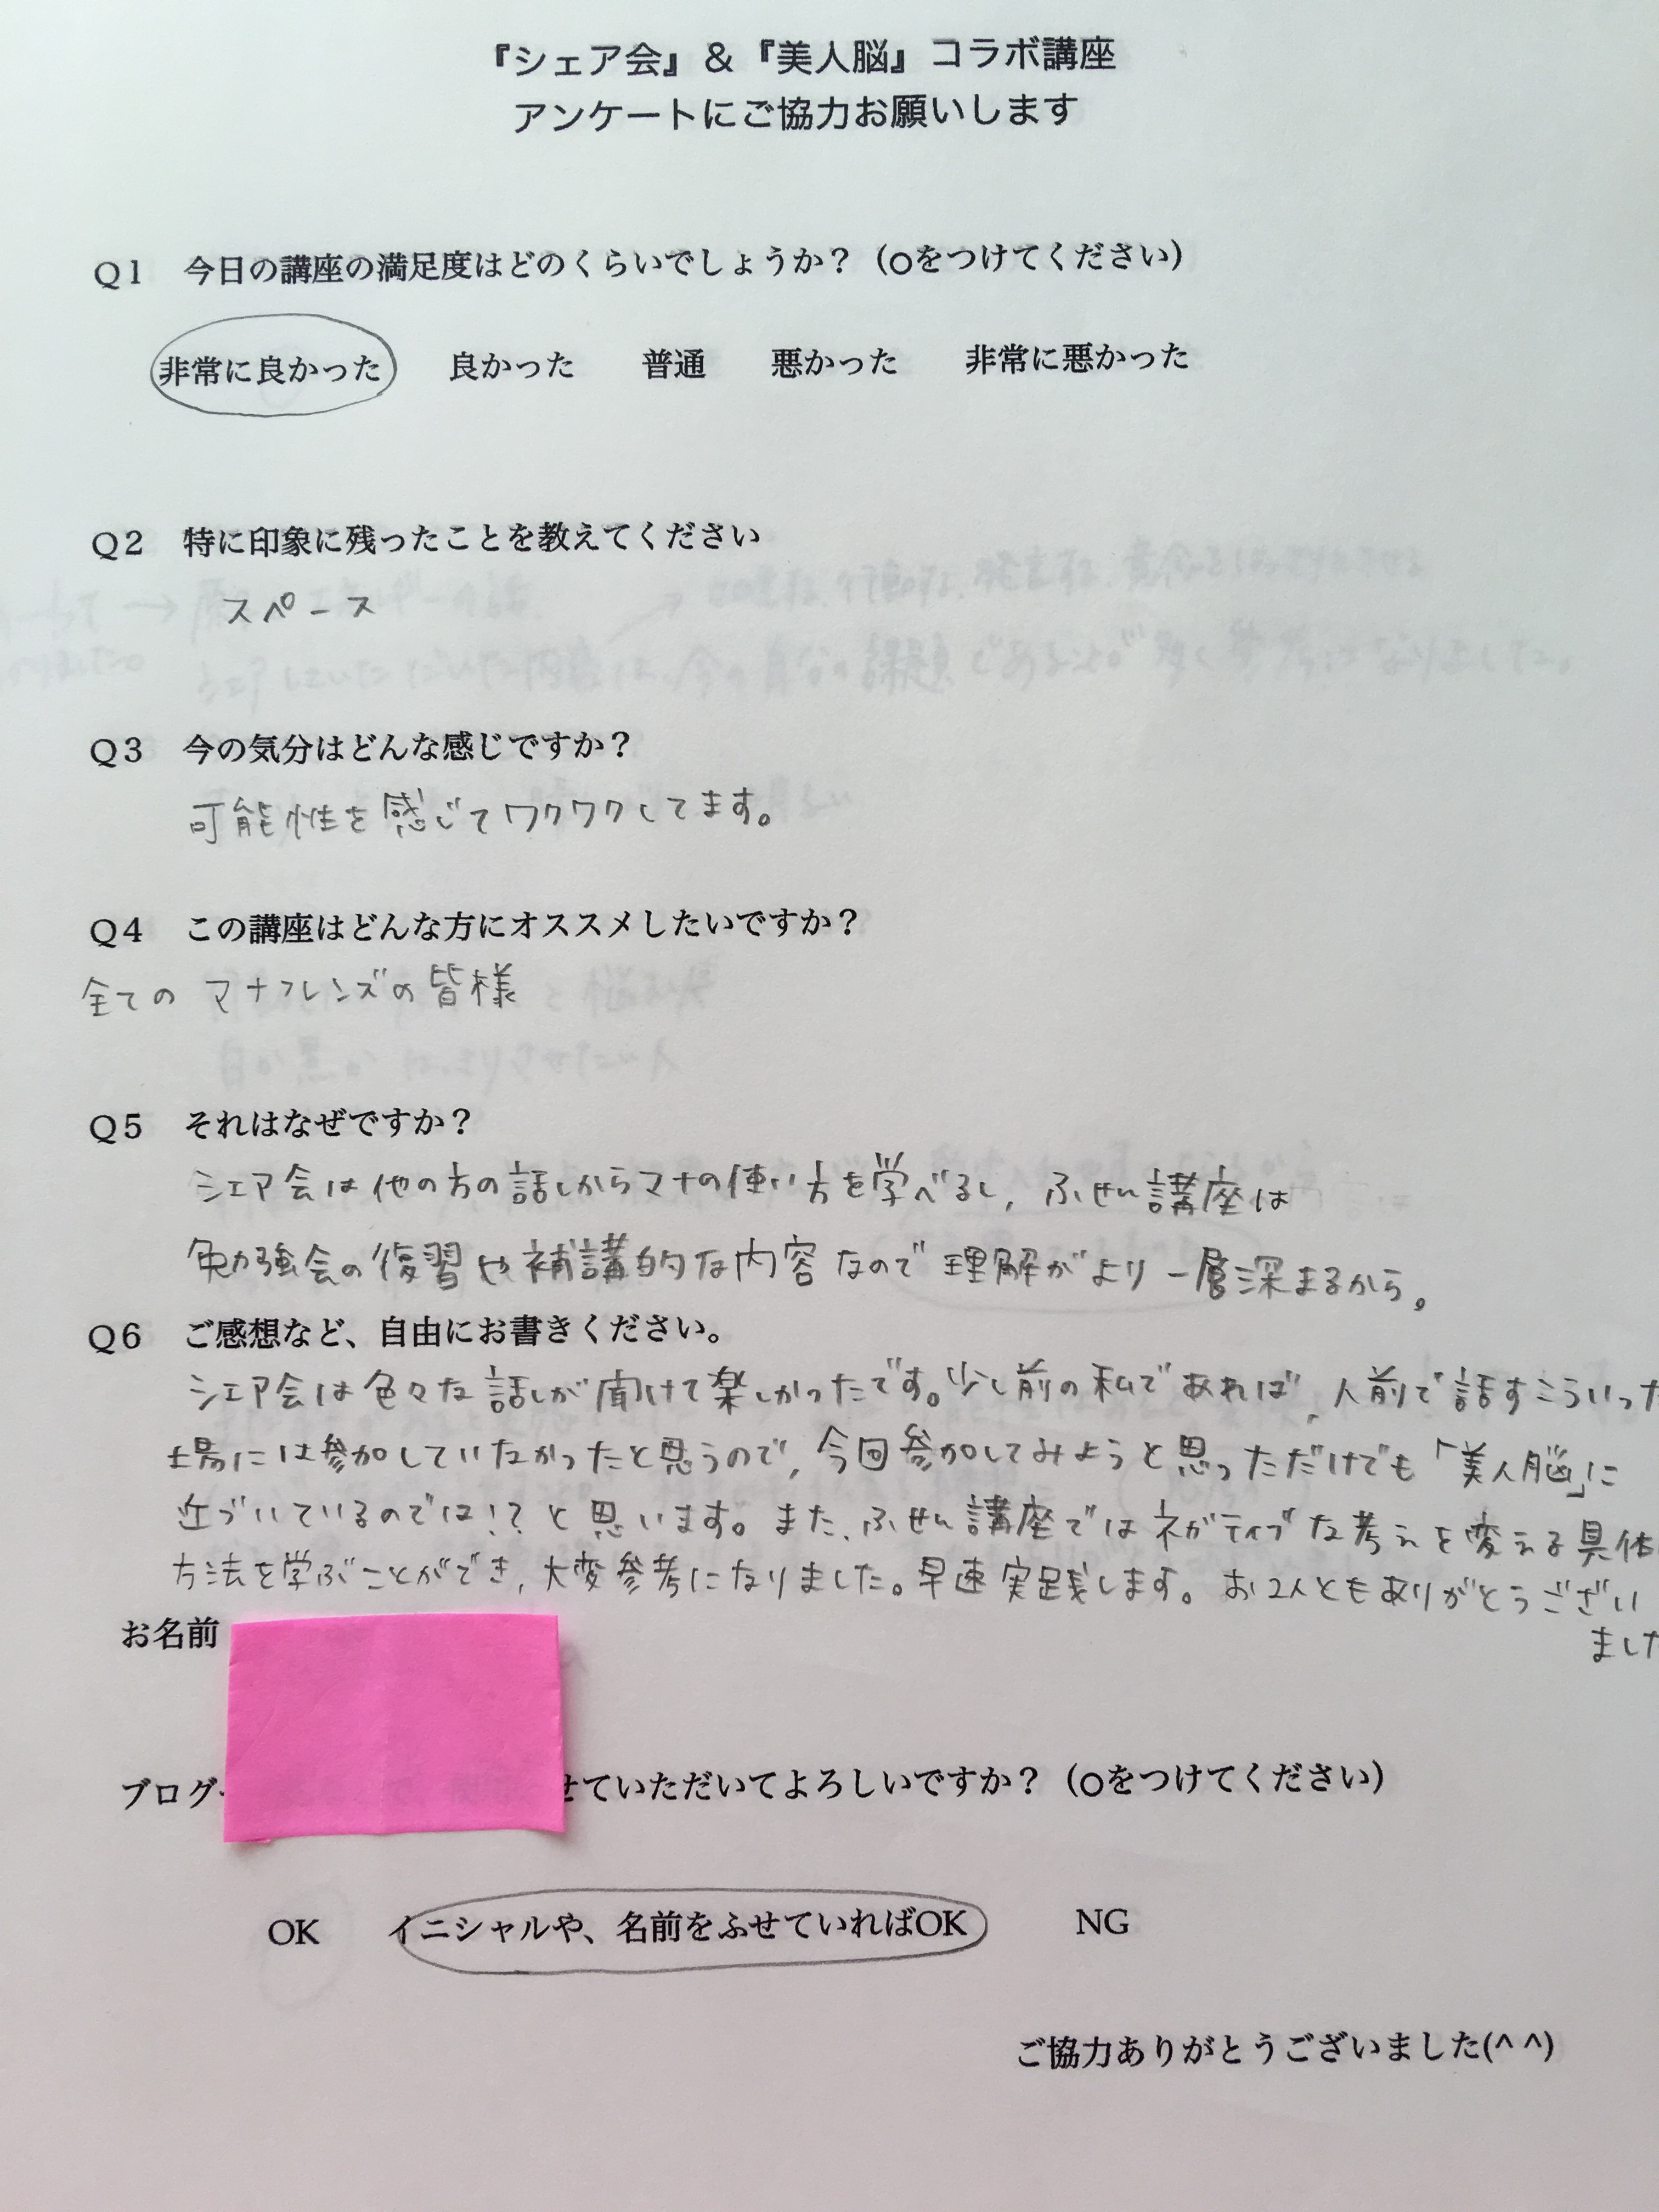 『シェア会』＆『美人脳』コラボ講座
アンケートにご協力お願いします
Q1　今日の講座の満足度はどのくらいでしょうか？（○をつけてください）
非常に良かった　良かった　普通　悪かった　非常に悪かった
Q2　特に印象に残ったことを教えてください
スペース
Q3　今の気分はどんな感じですか？
可能性を感じてワクワクしてます。
Q4　この講座はどんな方にオススメしたいですか？
全ての マナフレンズの皆様
Q5　それはなぜですか？
シェア会は他の方の話しからマナの使い方を学べるし, ふせん講座は
勉強会の復習や補講的な内容なので理解がより一層深まるから。
Q6　ご感想など、自由にお書きください。
シェア会は色々な話しが聞けて楽しかったです。少し前の私であれば, 人前で話すこういった
場には参加していなかったと思うので, 今回参加してみようと思っただけでも「美人脳」に
近づいているのでは!?と思います。また, ふせん講座ではネガティブな考えを変える具体
方法を学ぶことができ, 大変参考になりました。早速実践します。お2人ともありがとうござい
ました
お名前
ブログ せていただいてよろしいですか？（○をつけてください）
OK　イニシャルや、名前をふせていればOK　NG
ご協力ありがとうございました(^ ^)